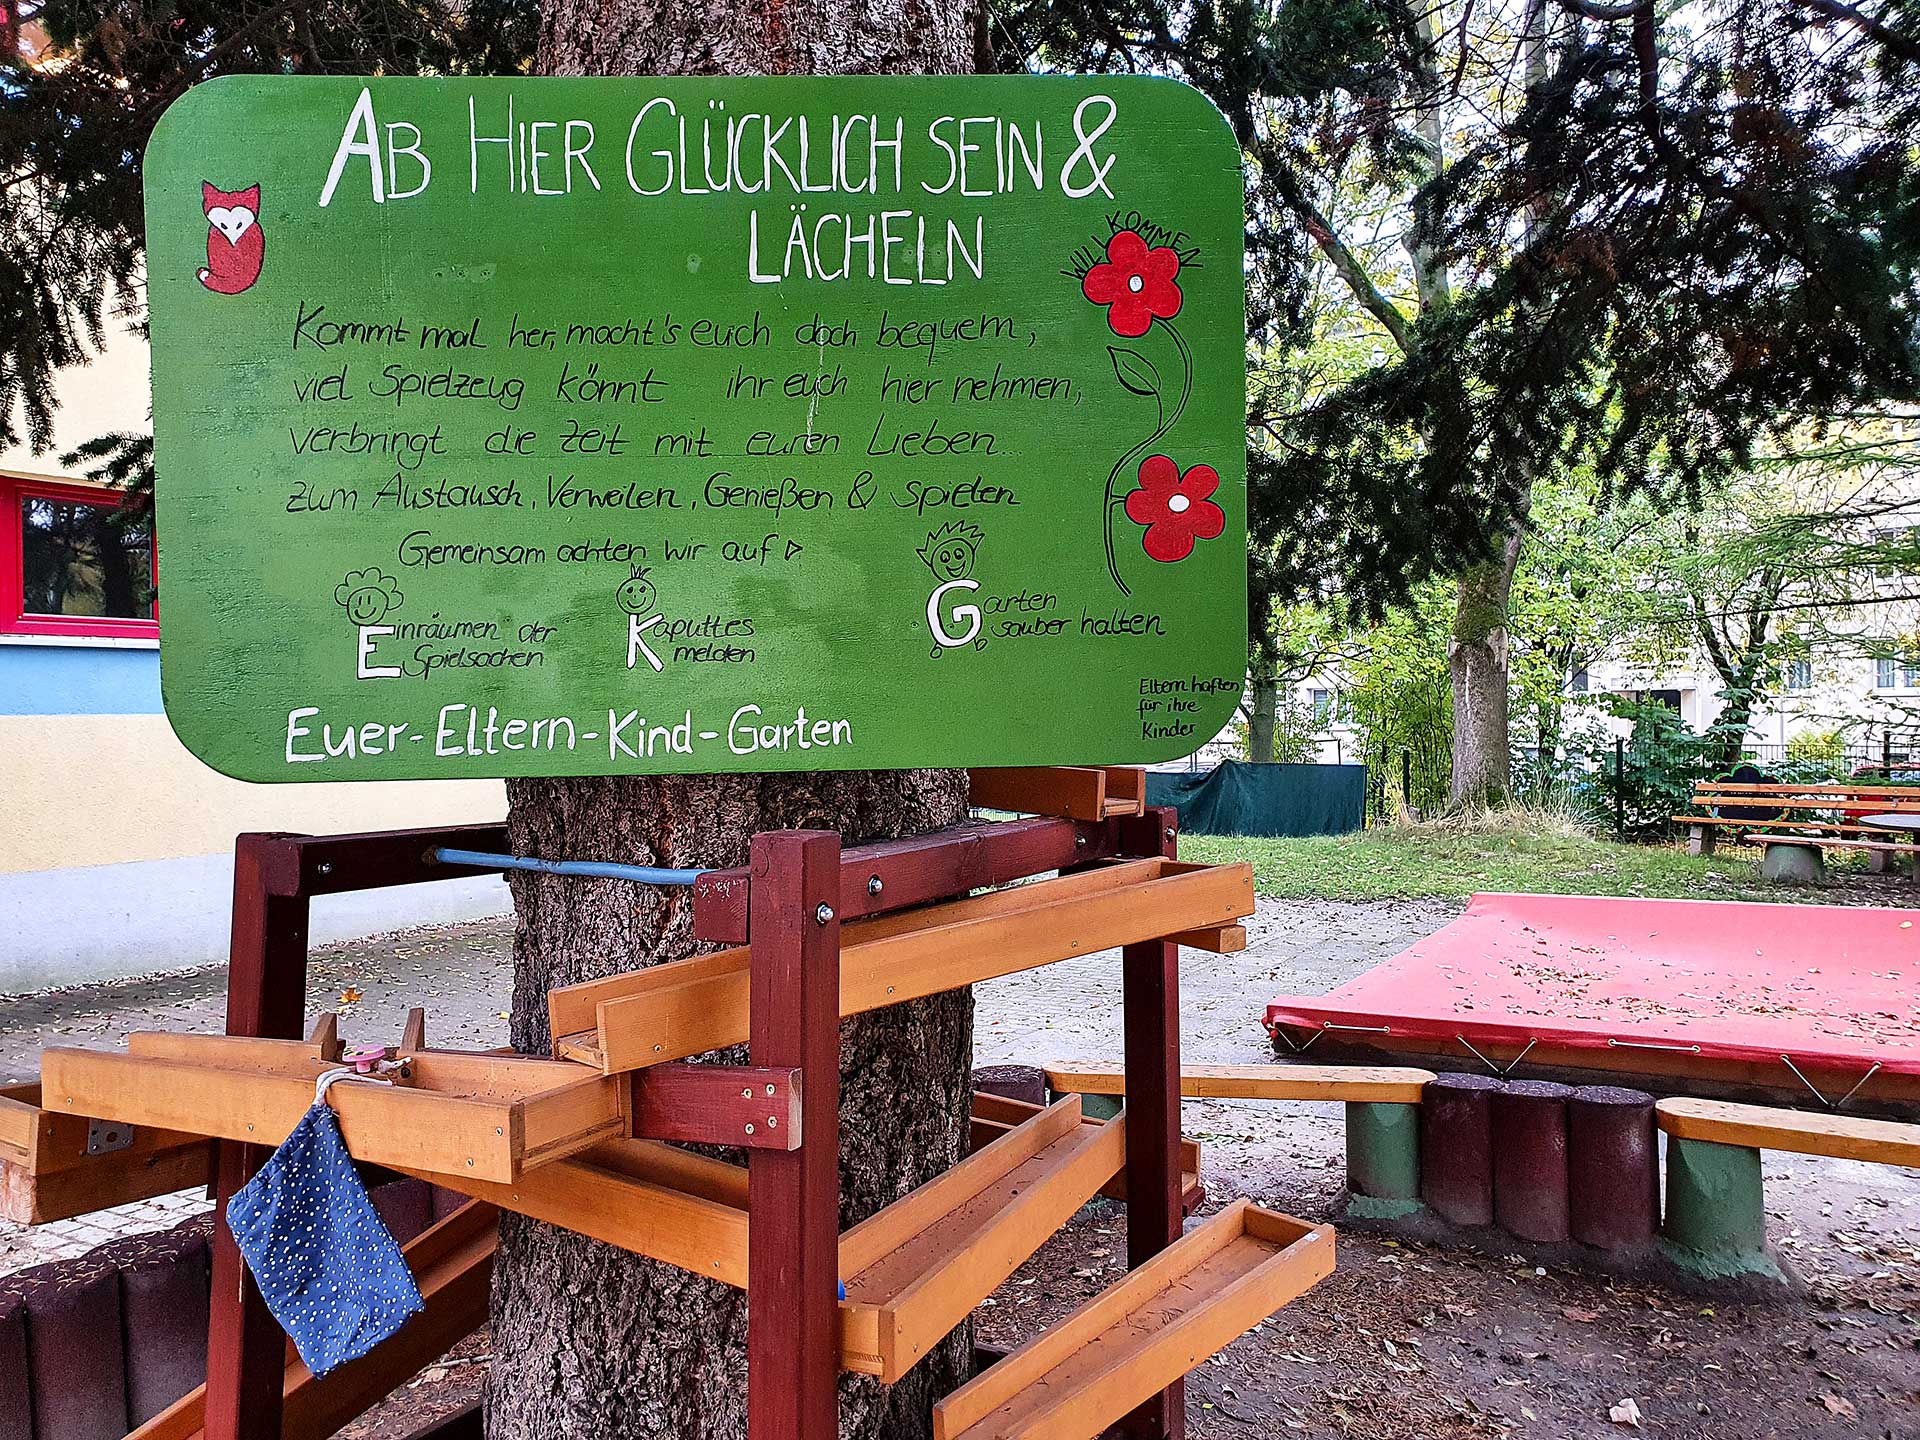 AB HIER GLÜCKLICH SEIN &
LÄCHELN
WILLKOMMEN
Kommt mal her, macht's euch doch bequem,
viel Spielzeug könnt ihr euch hier nehmen,
verbringt die Zeit mit euren Lieben...
zum Austausch, Verweilen, Genießen & Spielen
Gemeinsam achten wir auf
Einräumen der
Spielsachen
Kaputtes
melden
Garten
sauber halten
Eltern haften
für ihre
Kinder
Euer-Eltern-Kind-Garten